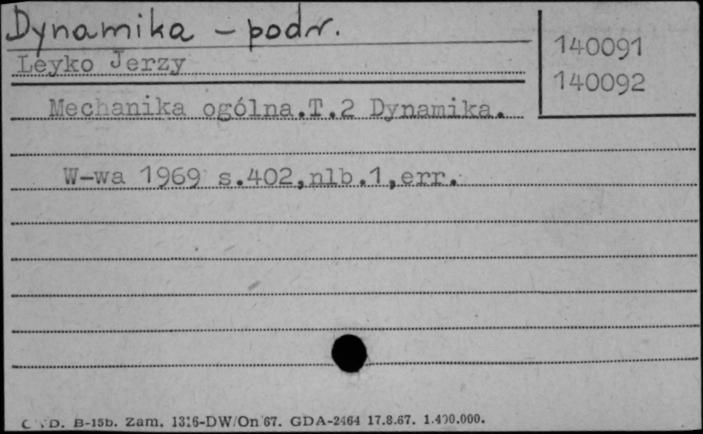 Dynamika - podr.
140091
140092
Leyko Jerzy
Mechanika ogólna.T.2 Dynamika.
W-wa 1969 s.402,nlb.1,err.
B-15b. Zam. 1316-DW/On/67. GDA-2464 17.8.67.